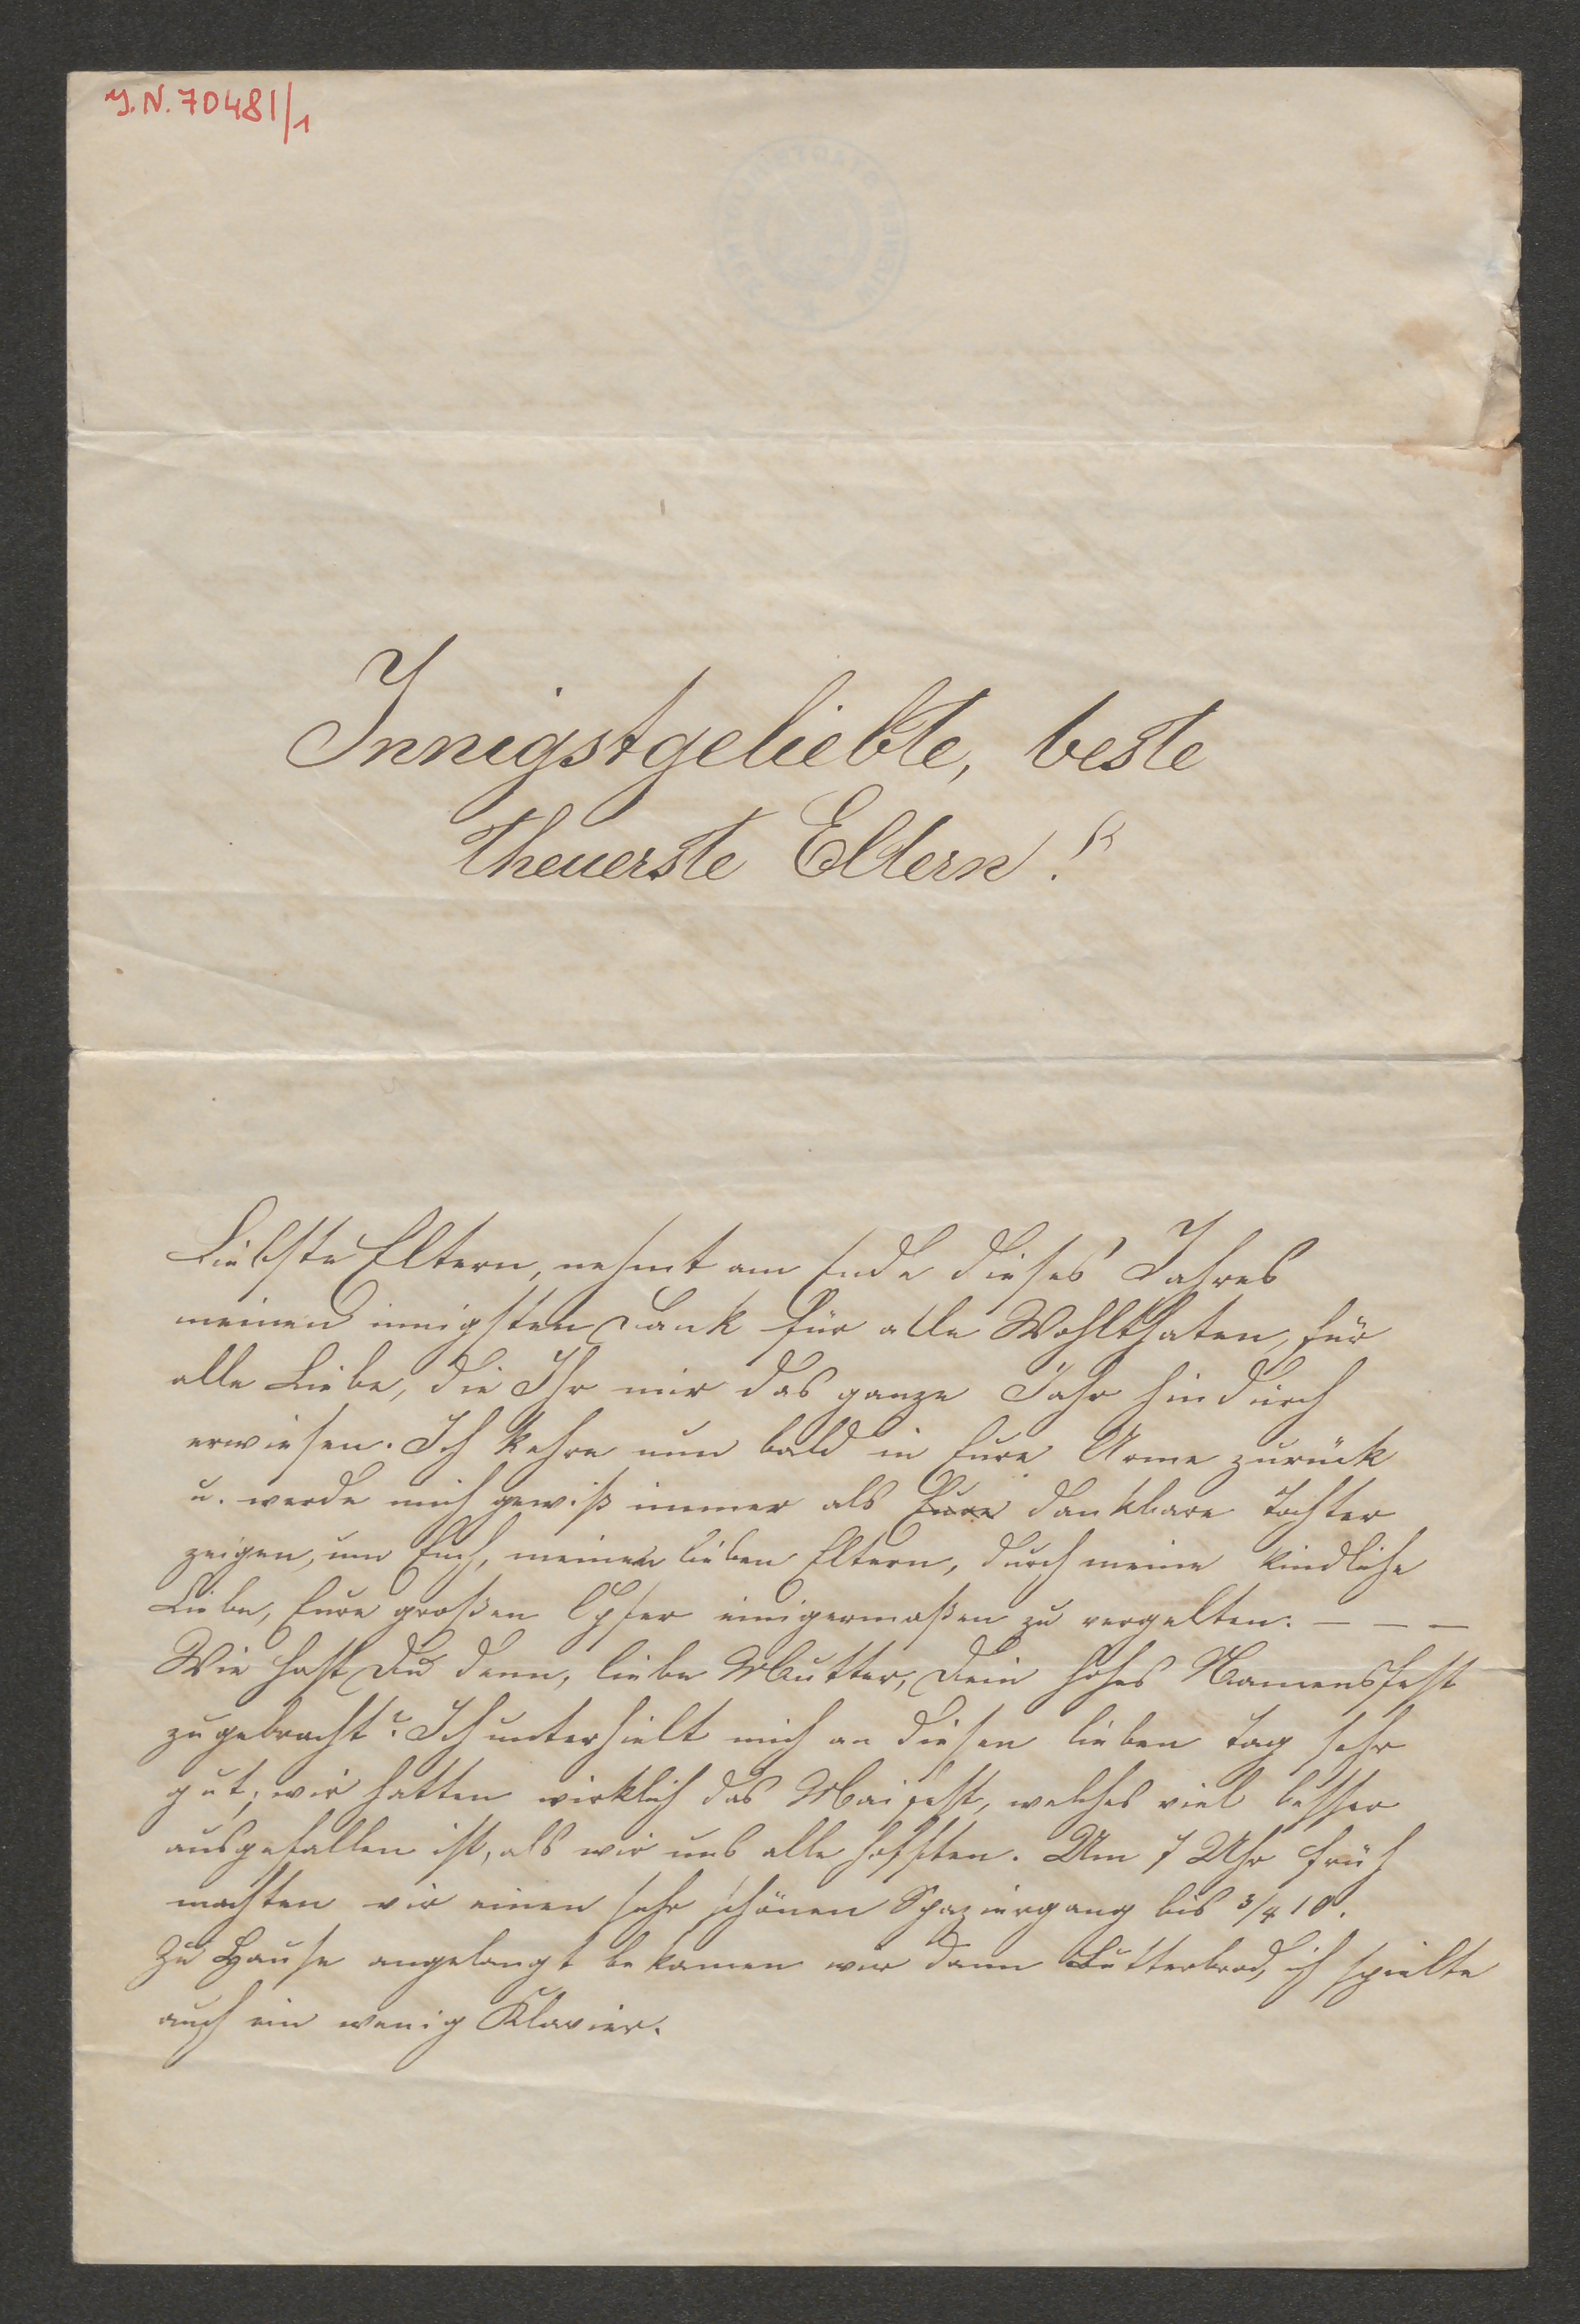 J.N. 70481/1
Innigstgeliebte, beste
theuerste Eltern!
Liebste Eltern, nehmt am Ende dieses Jahres
meinen innigsten Dank für alle Wohlthaten, für
alle Liebe, die Ihr mir das ganze Jahr hindurch
erwiesen. Ich kehre nun bald in Eure Arme zurück
u. werde mich gewiß immer als Eure dankbare Tochter
zeigen, um Euch, meinen lieben Eltern, durch meine kindliche
Liebe, Eure großen Opfer einigermaßen zu vergelten. – – –
Wie hast Du denn, liebe Mutter, Dein hohes Namensfest
zugebracht? Ich unterhielt mich an diesen lieben Tag sehr
gut; wir hatten wirklich das Maifest, welches viel besser
ausgefallen ist, als wir uns alle hofften. Um 7 Uhr früh
machten wir einen sehr schönen Spaziergang bis 3/4 10.
Zu Hause angelangt bekamen wir dann Butterbrod, ich spielte
auch ein wenig Klavier.